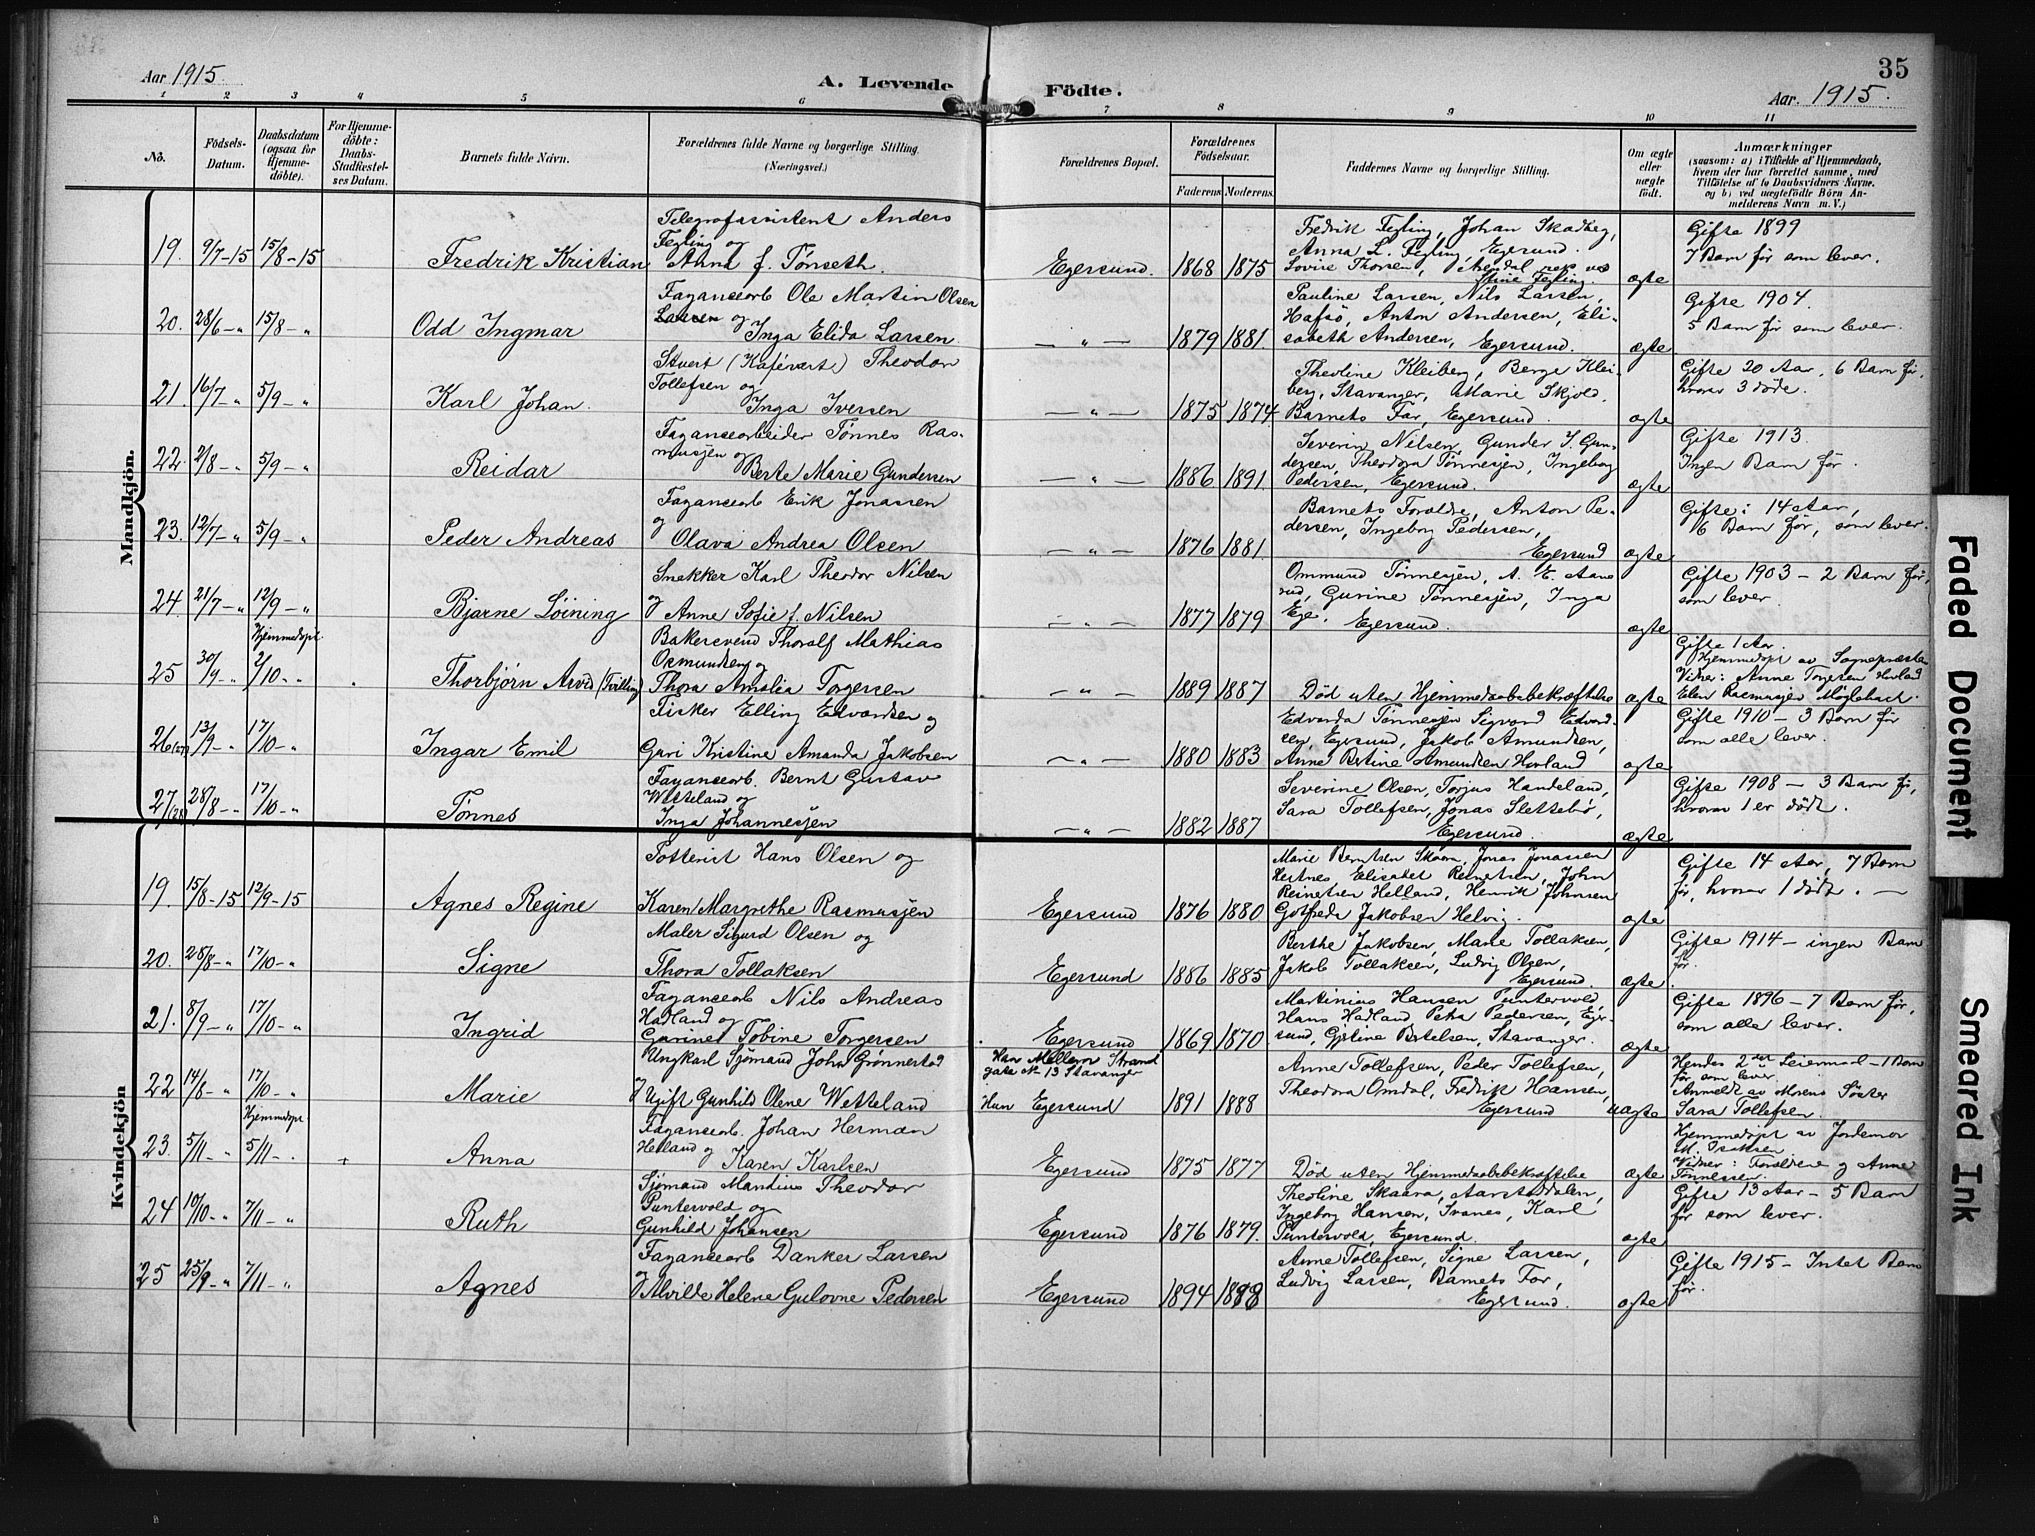 35
Aar 1915.
A. Levende Födte.
Aar. 1915.
1 2 3 4 5 6 7 8 9 10 11
Nö.
Födsels-Datum.
Daabsdatum (ogsaa for Hjemme-döbte).
For Hjemme-döbte: Daabs-Stadfæstel-ses Datum.
Barnets fulde Navn.
Forældrenes fulde Navne og borgerlige Stilling. (Næringsvei.)
Forældrenes Bopæl.
Forældrenes Födselsaar.
Faderens. Moderens.
Faddernes Navne og borgerlige Stilling.
Om ægte eller uægte födt.
Anmærkninger
(saasom: a) i Tilfælde af Hjemmedaab, hvem der har forrettet samme, med Tilföielse af to Daabsvidners Navne, og b) ved uægtefödte Börn An-melderens Navn m. V.)
Mandkjön.
19. 9/7-15 15/8-15 Fredrik Kristian
Telegrafassistent Anders
Fegling og
Anna f. Tönseth.
Egersund. 1868 1875
Fredrik Fegling, Johan Skadberg,
Anna L. Fegling, Egersund.
Lovise Thorsen, Arendal
Stine Fegling.
ægte
Gifte 1899
7 Barn før som lever.
20. 28/6 - " 15/8 - " Odd Ingmar
Fayancearb Ole Martin Olsen
Larsen og
Inga Elida Larsen
— " — 1879 1881.
Pauline Larsen, Nils Larsen,
Hafsö, Anton Andersen, Eli-
sabeth Andersen, Egersund.
ægte
Gifte 1904.
5 Barn før som lever.
21. 16/7 - " 5/9 - " Karl Johan.
Stuert (Kafévært) Theodor
Tollefsen og
Inga Iversen
— " — 1875 1874
Theoline Kleiberg, Berge Klei-
berg, Stavanger, Marie Skjold.
Barnets Far, Egersund.
ægte
Gifte 20 Aar, 6 Barn før,
hvorav 3 døde.
22. 2/8 - " 5/9 - " Reidar
Fayancearbeider Tønnes Ras-
musjen og
Berte Marie Gundersen
— " — 1886 1891.
Severin Nilsen, Gunder S. Gun-
dersen, Theodora Tønnesjen, Ingeborg
Pedersen, Egersund.
ægte
Gifte 1913.
Ingen Barn før.
23. 12/7 - " 5/9 - " Peder Andreas
Fayancearb Erik Jonassen
og
Olava Andrea Olsen
— " — 1876 1881.
Barnets Forældre, Anton Pe-
dersen, Ingeborg Pedersen,
Egersund
ægte
Gifte i 14 Aar,
6 Barn før, som lever.
24. 21/7 - " 12/9 - " Bjarne Löining
Snekker Karl Theodor Nilsen
og Anne Sofie f. Nilsen
— " — 1877 1879
Ommund Tønnesjen, A. E. Aase
rud, Gurine Tønnesjen, Inga
Ege. Egersund.
ægte
Gifte 1903 - 2 Barn før,
som lever.
Hjemmedøpt.
25 30/9 - " 2/10 - " Thorbjørn Arvid (Tvilling)
Bakersvend Thoralf Mathias
Osmundsen og
Thora Amalia Torgersen
— " — 1889 1887
Død uten Hjemmedaabsbekræftelse
ægte
Gifte 1 Aar.
Hjemmedøpt av Sogneprest
Vidner: Anne Torgersen Havland
Elen Rasmusjen Møglebust.
26 (27) 13/9 - " 17/10 - " Ingar Emil
Fisker Elling Edvardsen og
Guri Kristine Amanda Jakobsen
— " — 1880 1883
Edvarda Tønnesjen Sigvard Edvard-
sen, Egersund, Jakob Amundsen,
Anne Betine Amundsen Havland
ægte
Gifte 1910 - 3 Barn før
som alle lever.
27 (28) 28/8 - " 17/10 - " Tønnes
Fayancearb. Bernt Gustav
Wetteland og
Inga Johannesjen
— " — 1882 1887
Severine Olsen, Torjus Handeland,
Sara Tollefsen, Jonas Slettebø,
Egersund.
ægte
Gifte 1908 - 3 Barn før,
hvorav 1 er dødt.
Kvindekjön
19. 15/8-15 12/9-15 Agnes Regine
Potterist Hans Olsen og
Karen Margrethe Rasmusjen
Egersund 1876 1880
Marie Berntsen Skaara, Jonas Jonassen
Hestnes, Elisabet Reinetsen, John
Reinetsen Helland, Henrik Johnsen
Gotfreda Jakobsen Helvig.
ægte
Gifte 14 Aar, 7 Barn
før, hvorav 1 dødt. —
20. 28/8 - " 17/10 - " Signe
Maler Sigurd Olsen og
Thora Tollaksen
Egersund 1886 1885
Berthe Jakobsen, Marie Tollaksen,
Jakob Tollaksen, Ludvig Olsen,
Egersund.
ægte.
Gifte 1914 - ingen Barn
før.
21. 8/9 - " 17/10 - " Ingrid
Fayancearb Nils Andreas
Hadland og
Gurine Tobine Torgersen
Egersund 1869 1870
Martinius Hansen Puntervold,
Hans Hadland Petra Pedersen, Eger-
sund, Gjetine Bertelsen, Stavanger.
ægte
Gifte 1896 - 7 Barn før,
som alle lever.
22 14/8 - " 17/10 - " Marie
Ungkarl Sjømand John Grønnestad
og Ugift Gunhild Olene Wetteland
Han Mellem Strand
gate No 13 Stavanger
Hun Egersund 1891 1888
Anne Tollefsen, Peder Tollefsen,
Theodora Omdal, Fredrik Hansen,
Egersund
uægte
Hendes 2det Leiermaal - 1 Barn
før, som lever.
Anmeldt av Morens Søster
Sara Tollefsen.
Hjemmedøpt
23. 5/11 - " 5/11 - . + Anna
Fayancearb. Johan Herman
Helland og
Karen Karlsen
Egersund 1875 1877
Død uten Hjemmedaabsbekræftelse
ægte
Hjemmedøpt av Jordemor
M. Isaksen
Vidner: Forældrene og Anne
Tønnessen.
24 10/10 - " 7/11 - " Ruth
Sjømand Mandius Theodor
Puntervold og
Gunhild Johansen
Egersund 1876 1879.
Theoline Skaara, Aarstaddalen,
Ingeborg Hansen, Svanes, Karl
Puntervold, Egersund.
ægte
Gifte 13 Aar - 5 Barn
før som lever.
25 25/9 - " 7/11 - " Agnes
Fayancearb Danker Larsen
og Alvilde Helene Gulovne Pedersen
Egersund 1894 1888
Anne Tollefsen, Signe Larsen,
Ludvig Larsen, Barnets Far,
Egersund.
ægte
Gifte 1915 - Intet Barn
før.
Faded Document
Smeared Ink